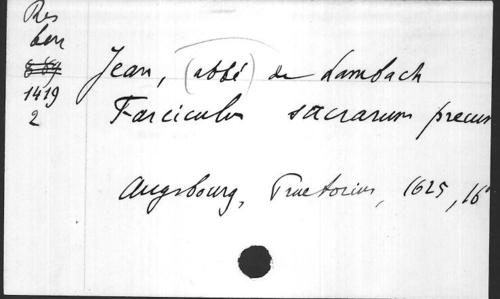 Res
Lem
1419
2
Jean, (abbé) de Lambach
Farciculus sacrarum precum
Augsbourg, Praetorius, 1625, 16°